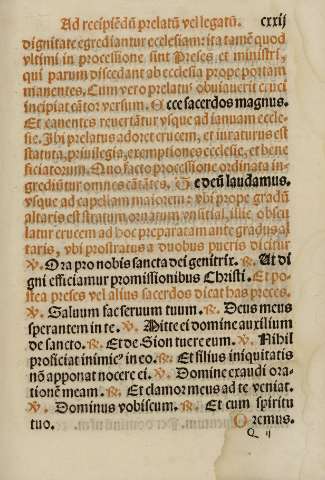 Ad recipiẽdũ prelatũ vel legatũ. cxxij
dignitate egrediantur ecclesiam: ita tamẽ quod
vltimi in processione sint Preses et ministri,
qui parum discedant ab ecclesia prope portam
manentes. Cum vero prelatꝰ obuiauerit cruci
incipiat cãtor versum. Ecce sacerdos magnus.
Et canentes reuertãtur vsque ad ianuam eccle-
sie. Ibi prelatus adoret crucem, et iuraturus est
statuta, priuilegia, exemptiones ecclesie, et bene
ficiatorum. Quo facto processione ordinata in-
grediũtur omnes cãtãtes. Te deũ laudamus.
vsque ad capellam maiorem: vbi prope gradũ
altaris est stratum, ornatum, illic oscu
latur crucem ad hoc preparatam ante gradus al
taris, vbi prostratus a duobus pueris dicitur
℣. Ora pro nobis sancta dei genitrix. ℟. Ut di
gni efficiamur promissionibus Christi. Et po-
stea preses vel alius sacerdos dicat has preces.
℣. Saluum fac seruum tuum. ℟. Deus meus
sperantem in te. ℣. Mitte ei domine auxilium
de sancto. ℟. Et de Sion tuere eum. ℣. Nihil
proficiat inimicꝰ in eo. ℟. Et filius iniquitatis
nõ apponat nocere ei. ℣. Domine exaudi ora-
tionẽ meam. ℟. Et clamor meus ad te veniat.
℣. Dominus vobiscum. ℟. Et cum spiritu
tuo. Oremus.
Q ij